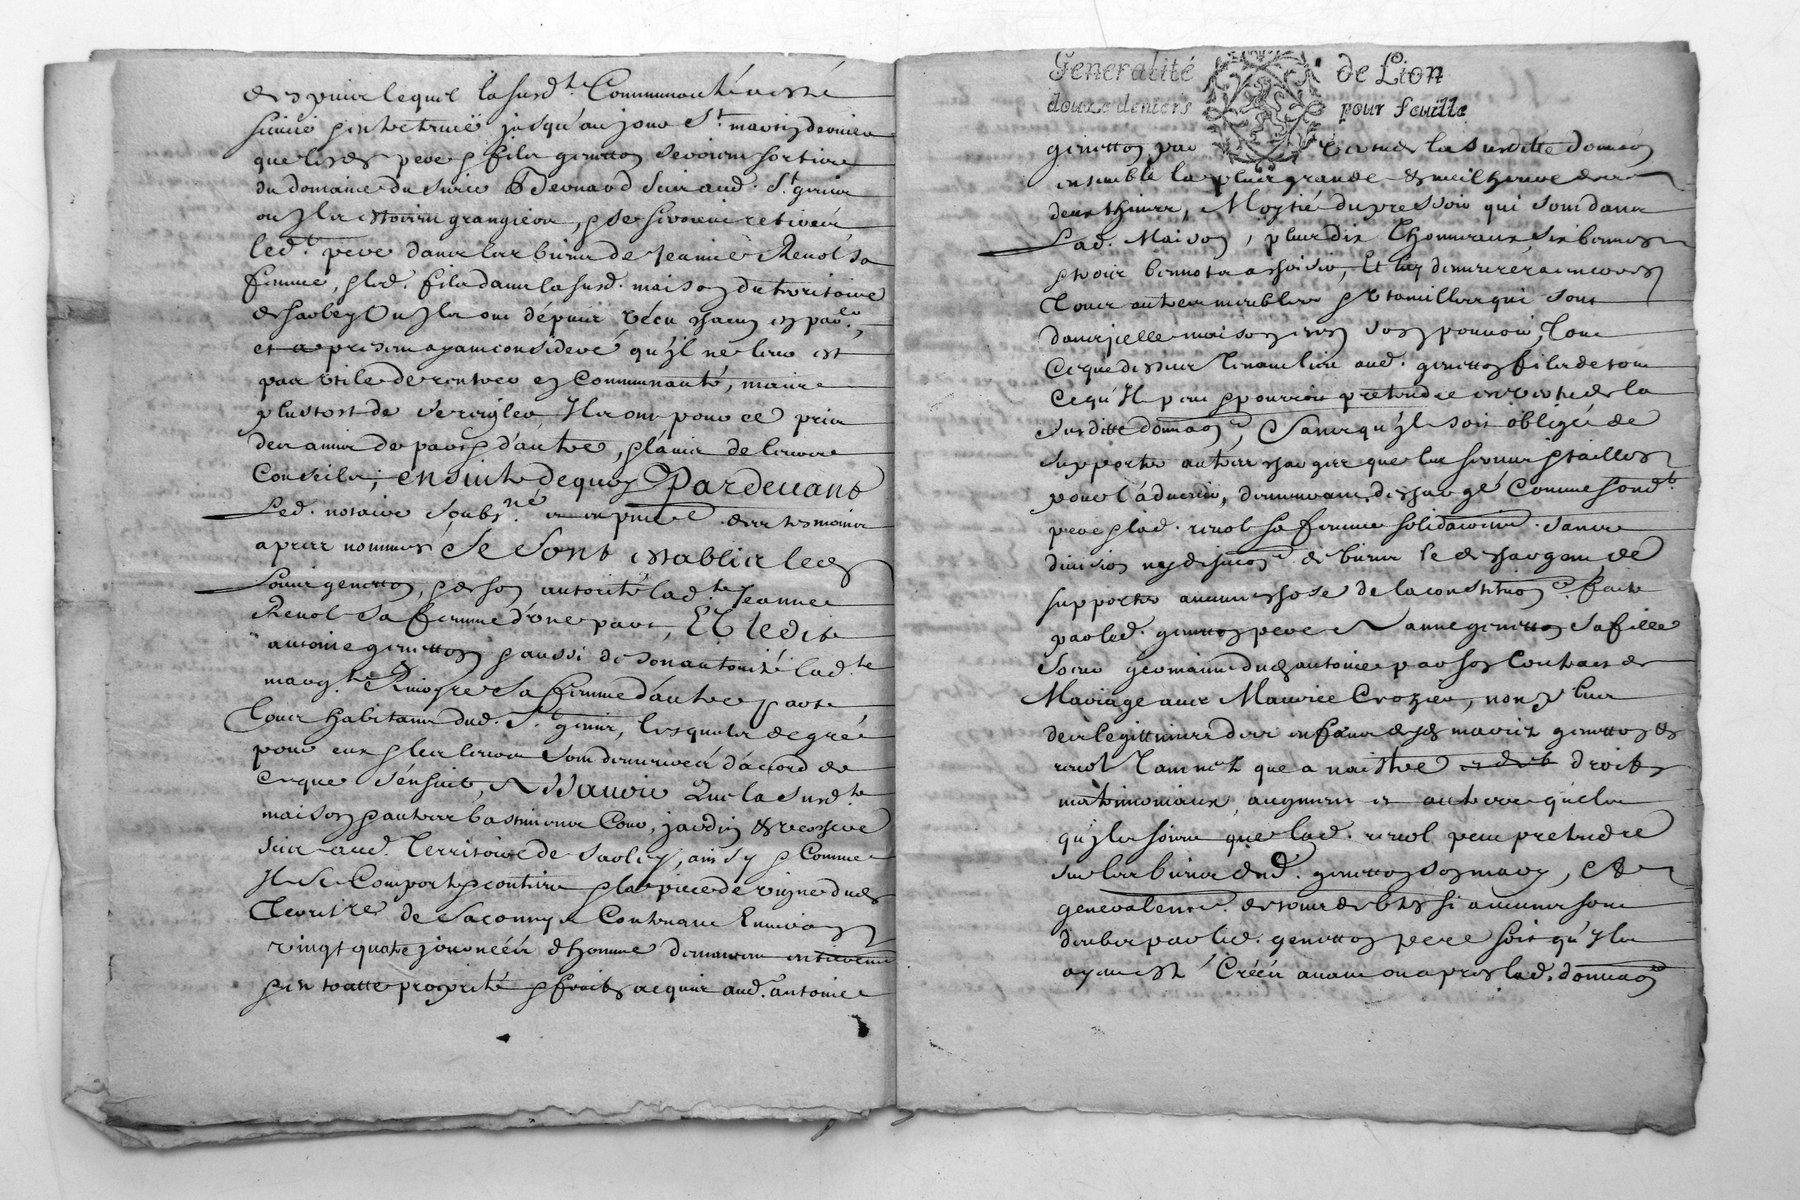 depuis lequel la susd.te Communauté a esté
suivie & entretenuë jusqu'au jour St martin dernier
que lesd. pere & fils genetton seroient sortis
du domaine du sieur Bernard scis aud. St. genis
ou Ils estoient grangiers, & se seroient retirés,
led.t pere dans les biens de Jeanne Renol sa
femme, & led. fils dans la susd. maison du territoire
de saoley Ou Ils ont dépuis vécu chacun en par.er,
et a present ayant considéré qu'il ne leur est
pas utile de rentrer en Communauté, mais
plustost de se regler Ils ont pour ce pris
des amis de part & d'autre, & l'avis de leurs
Conseils, ensuite dequoy Pardevant
Led. notaire soubs.né et en presence des tesmoins
apres nommés Se Sont establis led.
Louis genetton, & de son autorité lad.te Jeanne
Renol sa femme d'une part, Et ledit
antoine genetton & aussi de son autorité lad.te
marg.te sa femme d'autre part
Tous habitans dud. St. genis, lesquels de gré
pour eux & les leurs sont demeurés d'acord de
ce que s'ensuit, A Sçauoir Que la susd.te
maison & autres bastimens Cour, jardin &
scis aud. Territoire de Saoley, ainsy & Comme
Il se Comporte & contient & la piece de vigne dud.
Territre de Saconny Contenant Environ
vingt quatre journéés d'homme demeurent entierement
& en toutte proprieté & fruits acquis aud. antoine
Generalité de Lion
douze deniers pour feuille
genetton par vertu de la susditte donnaon
ensemble la plus grande & meilheure des
deux thines, Moytié du pressoir qui sont dans
Lad. Maison, plus dix Thonneaux six bennes
& trois bennots a Et luy demeurera encores
Tous autres meubles & Utansilles qui sont
dans jcelle maison en son pouvoir, Tout
Ce que dessus Tenant lieu aud. genetton fils de tout
Ce qu'Il peut & pourroit pretendre en vertu de la
susditte donnaon, Sans qu'il soit obligé de
supporter autres charges que les servis & tailles
pour l'advenir, demeurant deschargé Comme sond.t
pere & lad. renol sa femme solidairement sans
division ny discuon de biens le deschargent de
supporter aucune chose de la constituon faite
par led. genetton pere A anne genetton sa fille
soeur germaine dud. antoine par son Contract de
Mariage avec Maurice Crozier, non plus
des legittimes des enfans desd. mariéz genetton &
renol Tant nez que a naistre droits
matrimoniaux, augment et autres quels
qu'ils soient que lad. renol peut pretendre
sur les biens dud. genetton son mary, et
generalement de tous debtes si aucuns sont
deubs par led. genetton pere soit qu'Ils
ayent esté Créés avant ou apres lad. donnaon